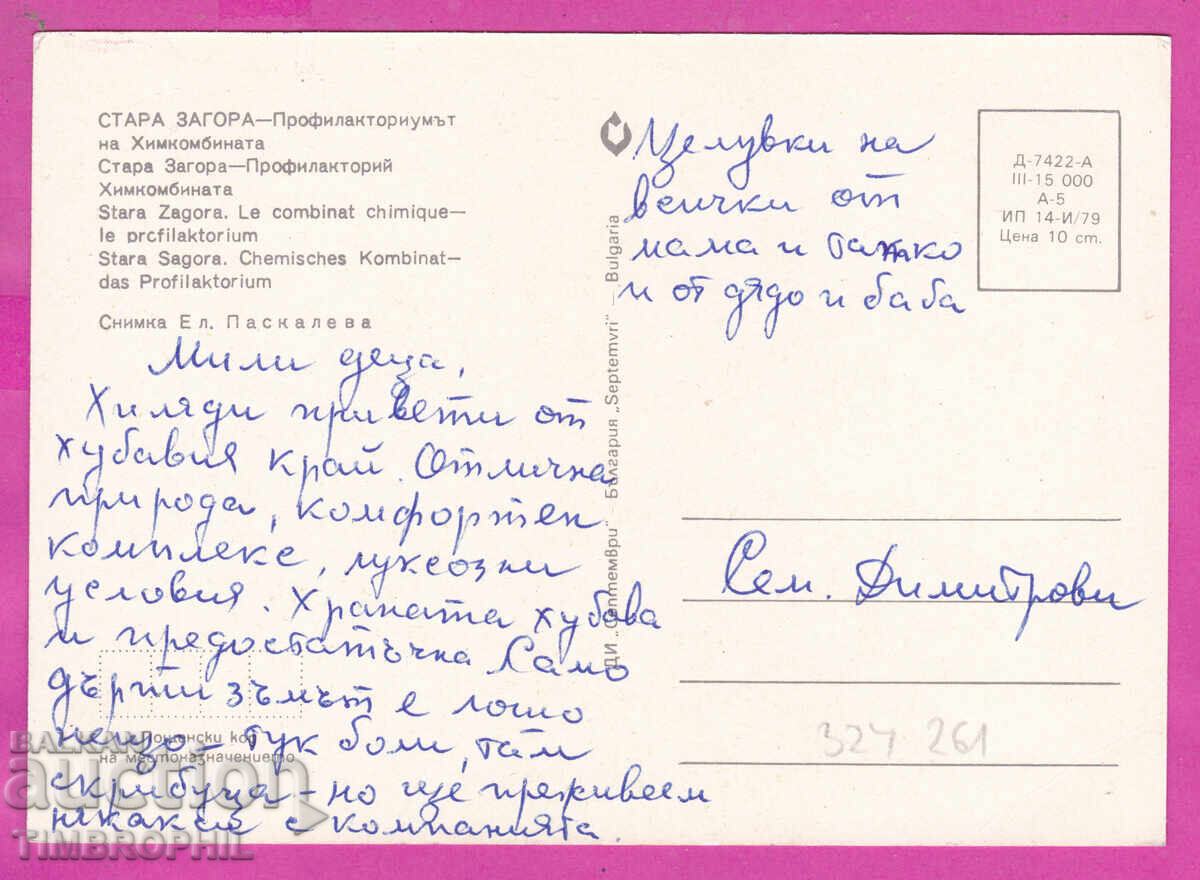 СТАРА ЗАГОРА—Профилакториумът
на Химкомбината
Стара Загора—Профилакторий
Химкомбината
Stara Zagora. Le combinat chimique—
le prcfilaktorium
Stara Sagora. Chemisches Kombinat—
das Profilaktorium
Снимка Ел. Паскалева
Мили деца,
Хиляди привети от
хубавия край. Отлична
природа, комфортен
комплекс, луксозни
условия. Храната хубава
и предостатъчна Само
дърти зъмът е лошо
нещо – тук боли, там
скрибуца – но ще преживеем
някак си с компанията.
Пощенски код
на местоназначението
ДИ „Септември" — България „Septemvri" — Bulgaria
Целувки на
всички от
мама и татко
и от дядо и баба
Д-7422-А
III-15 000
А-5
ИП 14-И/79
Цена 10 ст.
Сем. Димитрови
324 261
BALKAN
auction
TIMBROPHIL